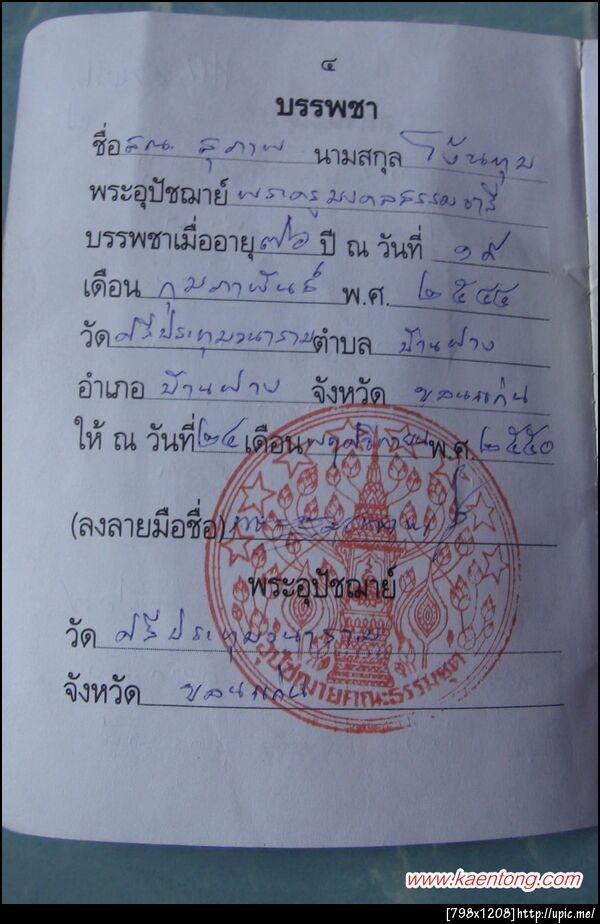 ๔
บรรพชา
ชื่อ สุภาพ นามสกุล
พระอุปัชฌาย์ พระครูมงคลธรรมชารี
บรรพชาเมื่ออายุ ๗๖ ปี ณ วันที่ ๑๙
เดือน กุมภาพันธ์ พ.ศ. ๒๕๔๔
วัด ศรีประทุมวนาราม ตำบล บ้านฝาง
อำเภอ บ้านฝาง จังหวัด ขอนแก่น
ให้ ณ วันที่ ๒๔ เดือน พฤศจิกายน พ.ศ. ๒๕๕๐
(ลงลายมือชื่อ)
พระอุปัชฌาย์
วัด ศรีประทุมวนาราม
จังหวัด ขอนแก่น
อุปัชฌาย์คณะธรรมยุต
www.kaentong.com
[798x1208]http://upic.me/